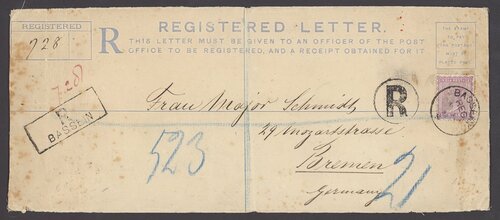 REGISTERED LETTER.
REGISTERED
728
R
THIS LETTER MUST BE GIVEN TO AN OFFICER OF THE POST
OFFICE TO BE REGISTERED, AND A RECEIPT OBTAINED FOR IT
728
R
BASSEIN
Frau Major Schmidt
R
29 Mozartstrasse,
Bremen
Germany
523
21